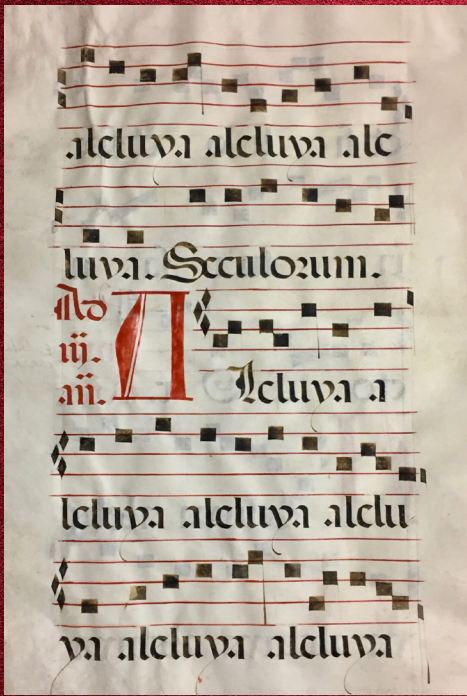 aleluya aleluya ale
luya. Seculorum.
Ad
iij.
an.
A Leluya a
leluya aleluya alelu
ya aleluya aleluya